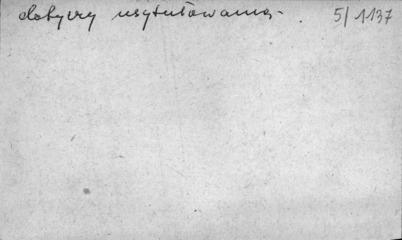 dotyczy usytuowania 5/1137